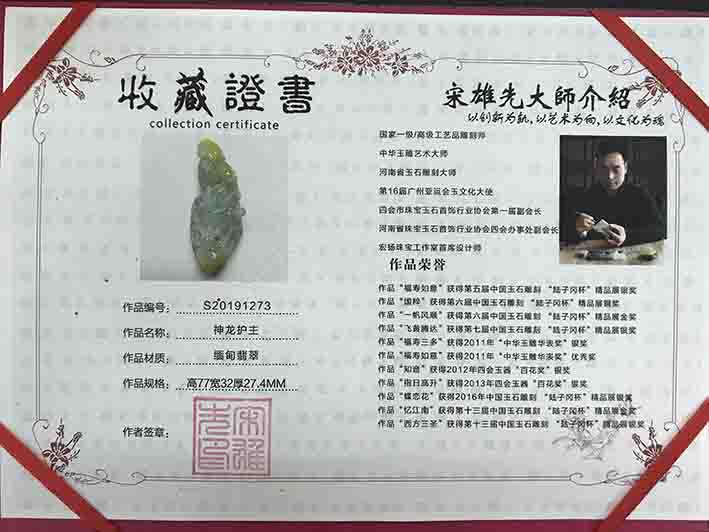 收藏證書
collection certificate
作品编号: SZ0191273
作品名称: 神龙护主
作品材质: 缅甸翡翠
作品规格: 高77宽32厚27.4MM
作者签章:
宋雄先大師介紹
以创新为轨,以艺术为向,以文化为魂
国家一级/高级工艺品雕刻师
中华玉雕艺术大师
河南省玉石雕刻大师
第16届广州亚运会玉文化大使
四会市珠宝玉石首饰行业协会第一届副会长
河南省珠宝玉石首饰行业协会四会办事处副会长
宏扬珠宝工作室首席设计师
作品荣誉
作品“福寿如意”获得第五届中国玉石雕刻 “陆子冈杯”精品展银奖
作品“国粹”获得第六届中国玉石雕刻 “陆子冈杯”精品展铜奖
作品“一帆风顺”获得第六届中国玉石雕刻 “陆子冈杯”精品展金奖
作品“飞黄腾达”获得第七届中国玉石雕刻 “陆子冈杯”精品展银奖
作品“福寿三多”获得2011年“中华玉雕华表奖”银奖
作品“福寿如意”获得2011年“中华玉雕华表奖”优秀奖
作品“知音”获得2012年四会玉器“百花奖”银奖
作品“指日高升”获得2013年四会玉器“百花奖”银奖
作品“蝶恋花”获得2016年中国玉石雕刻 “陆子冈杯”精品展银奖
作品“忆江南”获得第十三届中国玉石雕刻 “陆子冈杯”精品展金奖
作品“西方三圣”获得第十三届中国玉石雕刻 “陆子冈杯”精品展银奖